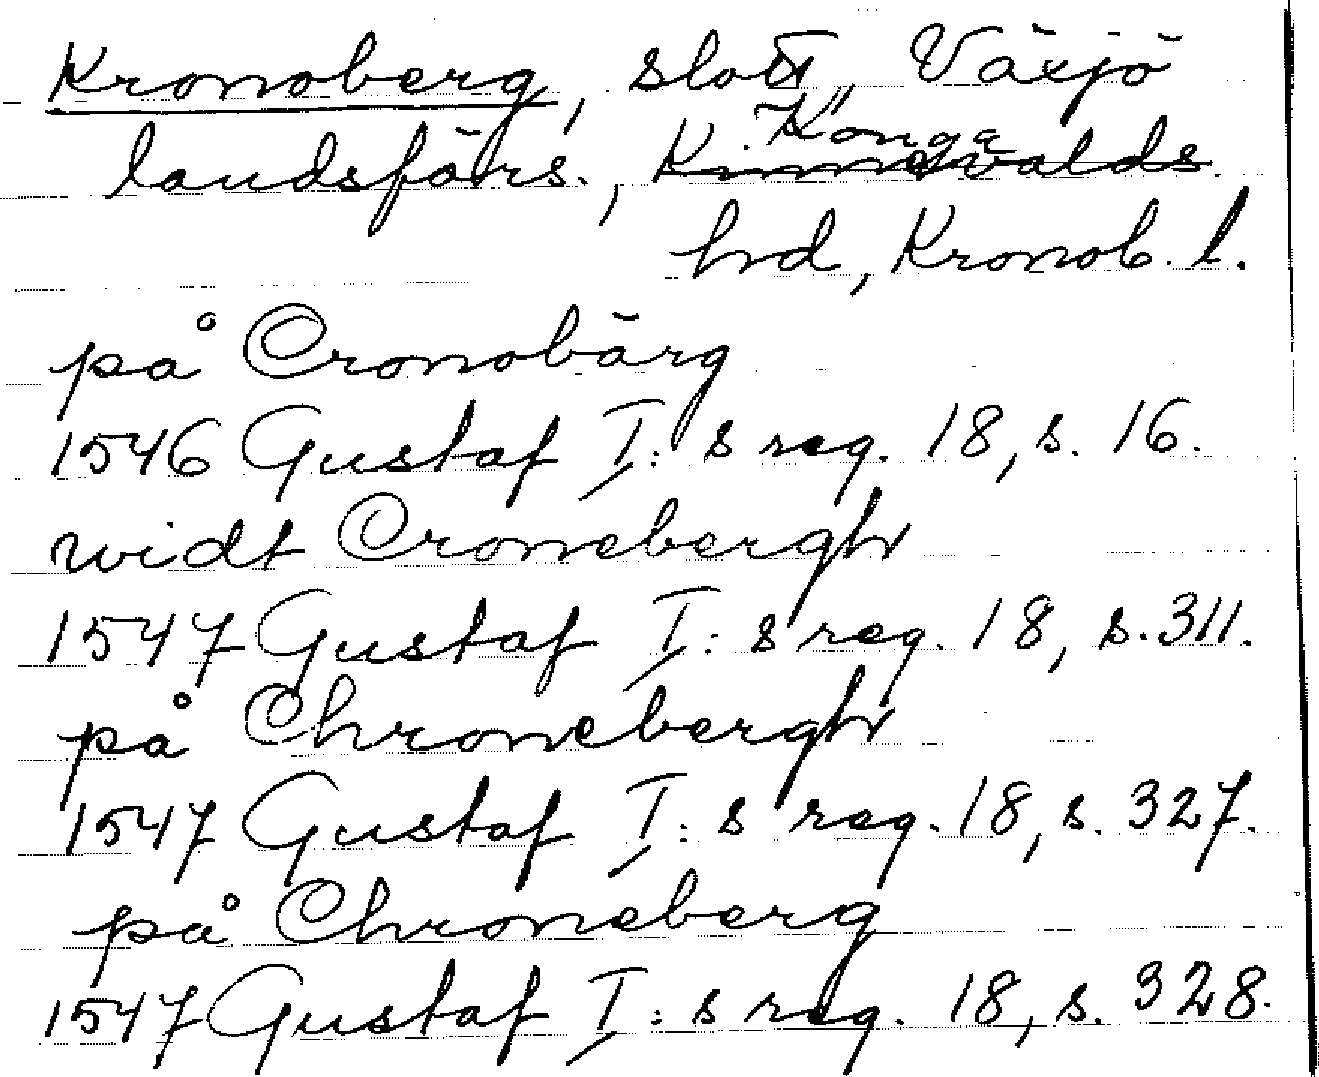 Kronoberg, slott, Växjö
Konga
landsförs., Kinnevalds
hrd, Kronob. l.
på Cronobärg
1546 Gustaf I: s reg. 18, s. 16.
widt Cronebergh
1547 Gustaf I: s reg. 18, s. 311.
på Chronebergh
1547 Gustaf I: s reg. 18, s. 327.
på Chroneberg
1547 Gustaf I: s reg. 18, s. 328.